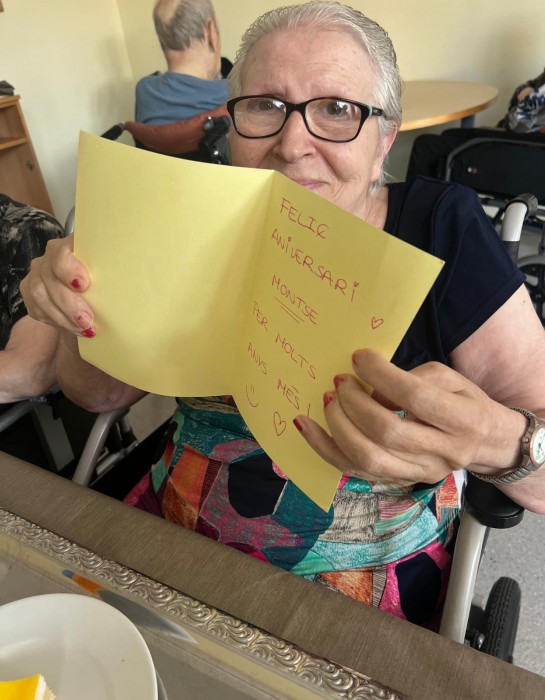 FELIÇ
ANiVERSARi
MONTSE
PER MOLTS
ANYS MÉS!